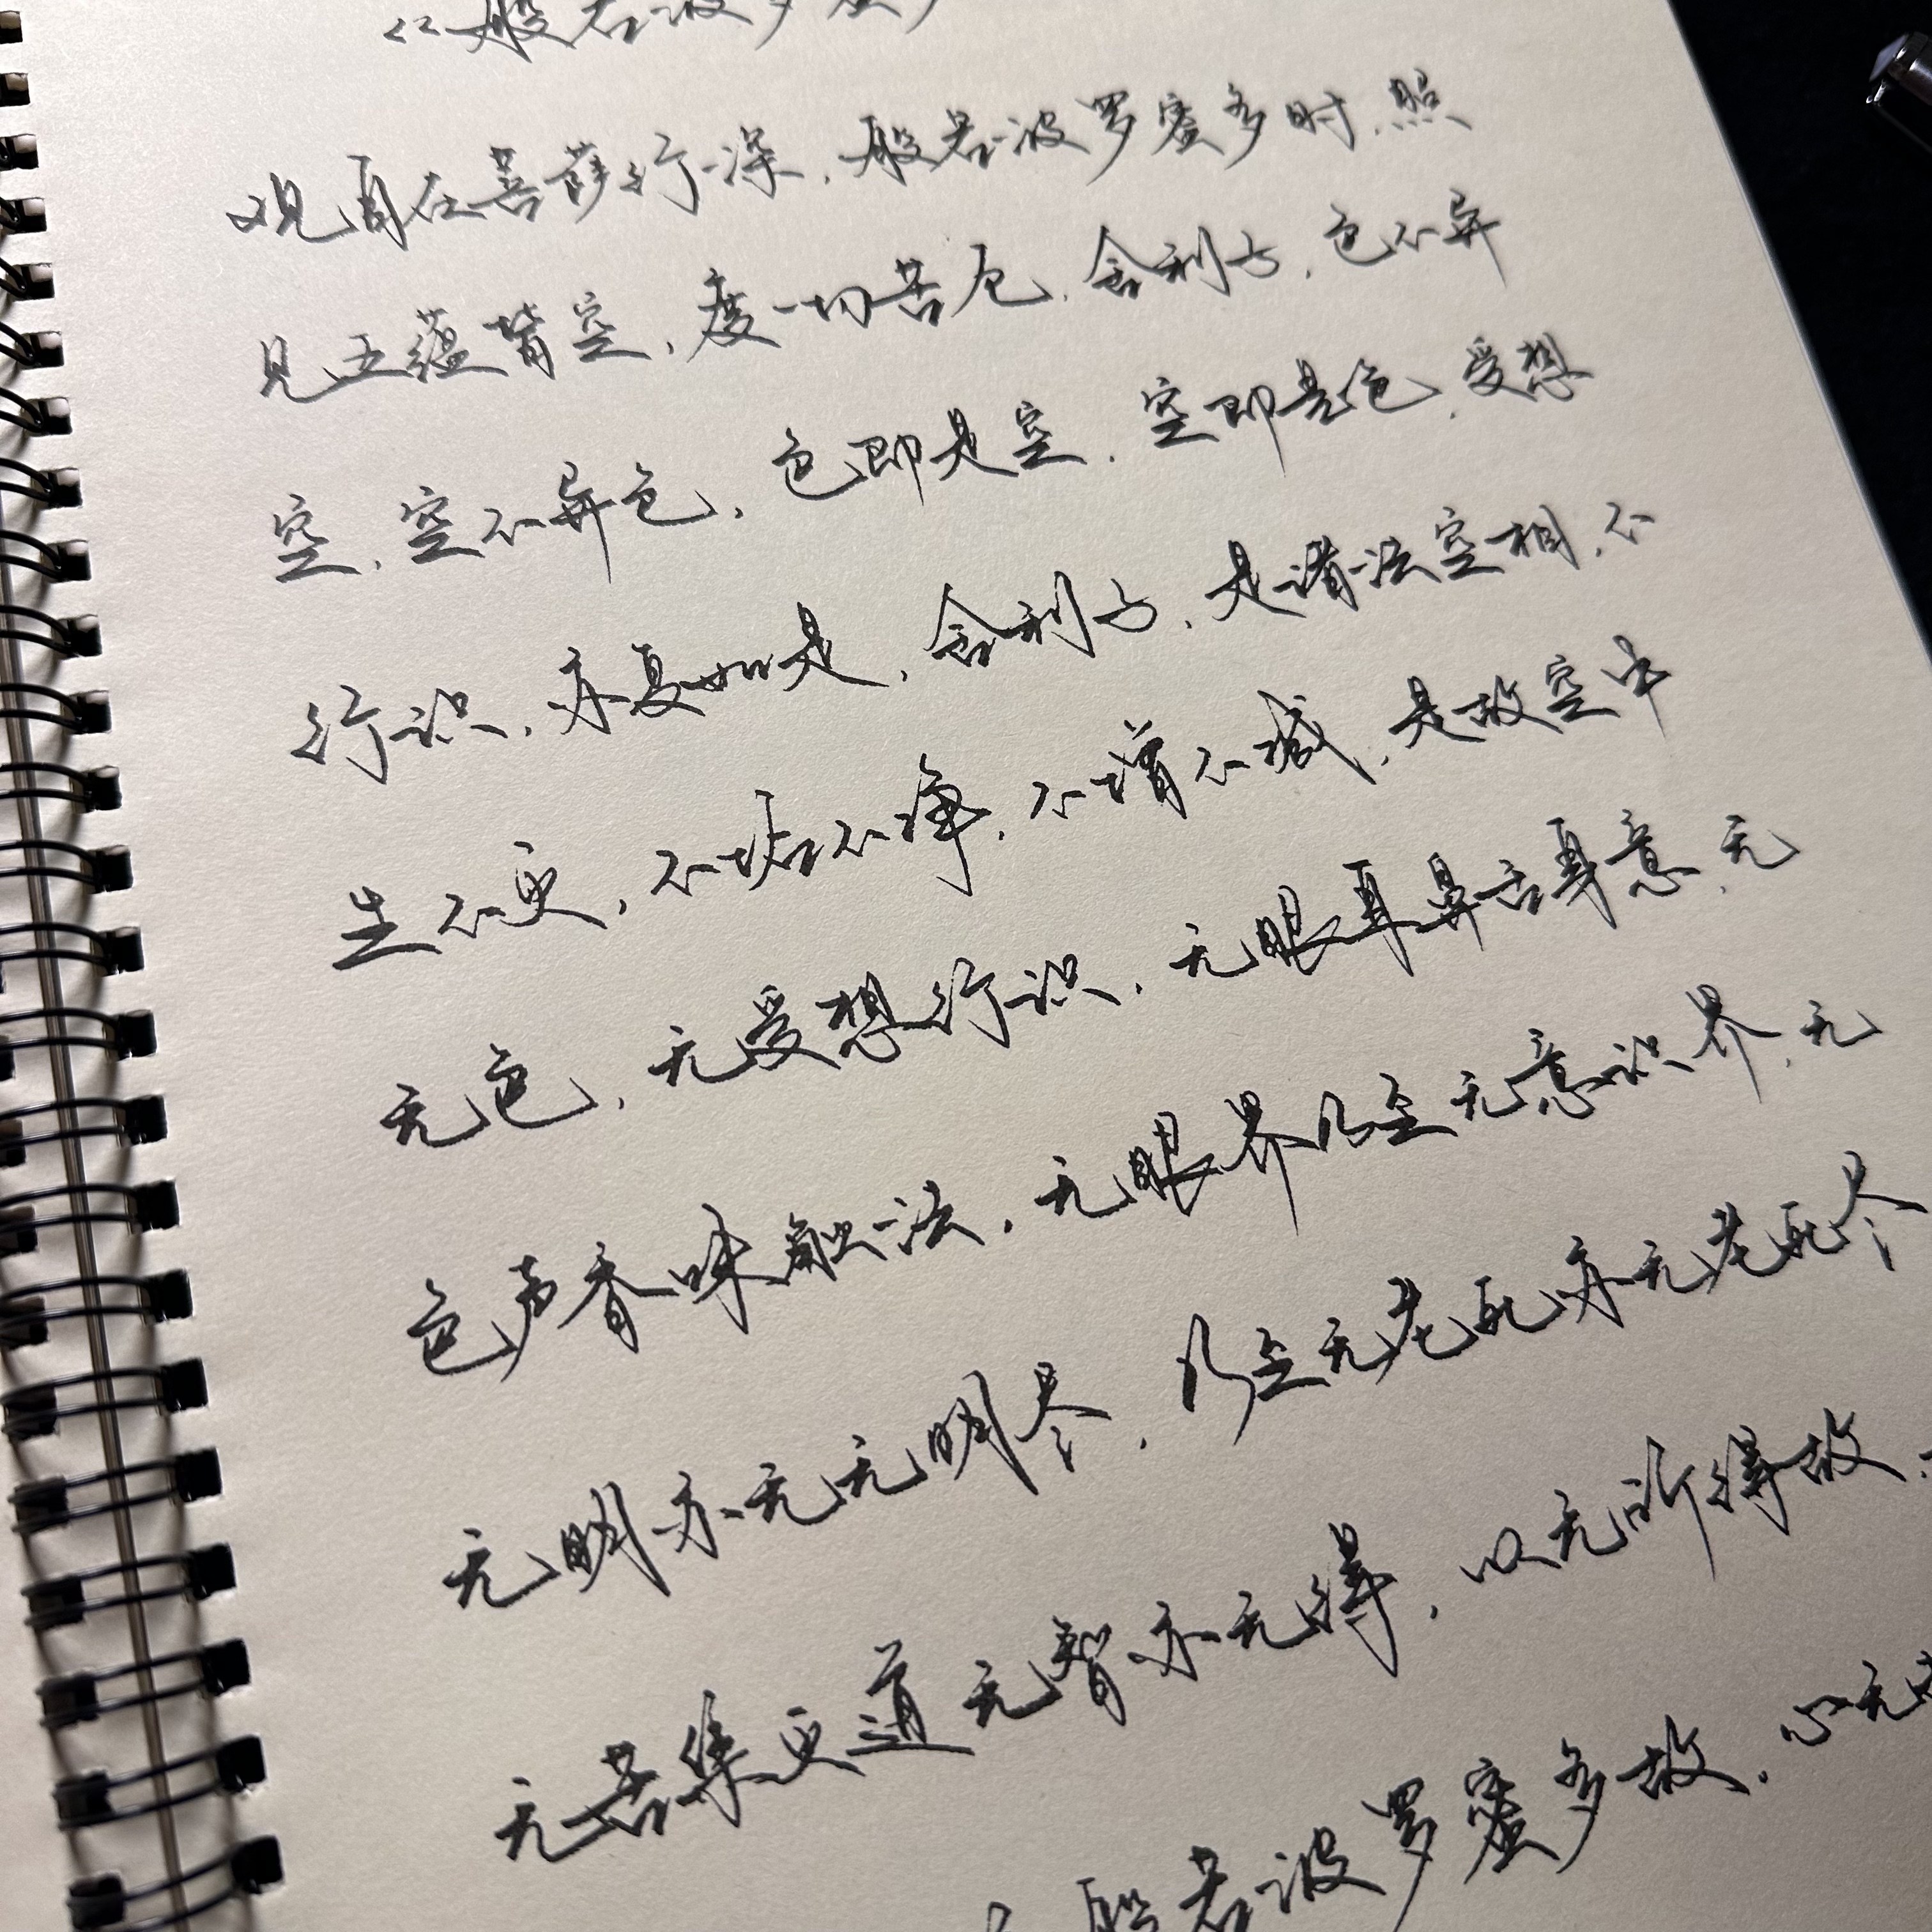 《般若波罗蜜多
观自在菩萨行深,般若波罗蜜多时,照
见五蕴皆空,度一切苦厄,舍利子,色不异
空,空不异色,色即是空,空即是色,受想
行识,亦复如是,舍利子,是诸法空相,不
生不灭,不垢不净,不增不减,是故空中
无色,无受想行识,无眼耳鼻舌身意,无
色声香味触法,无眼界乃至无意识界,无
无明亦无无明尽,乃至无老死亦无老死尽
无苦集灭道无智亦无得,以无所得故,
般若波罗蜜多故,心无